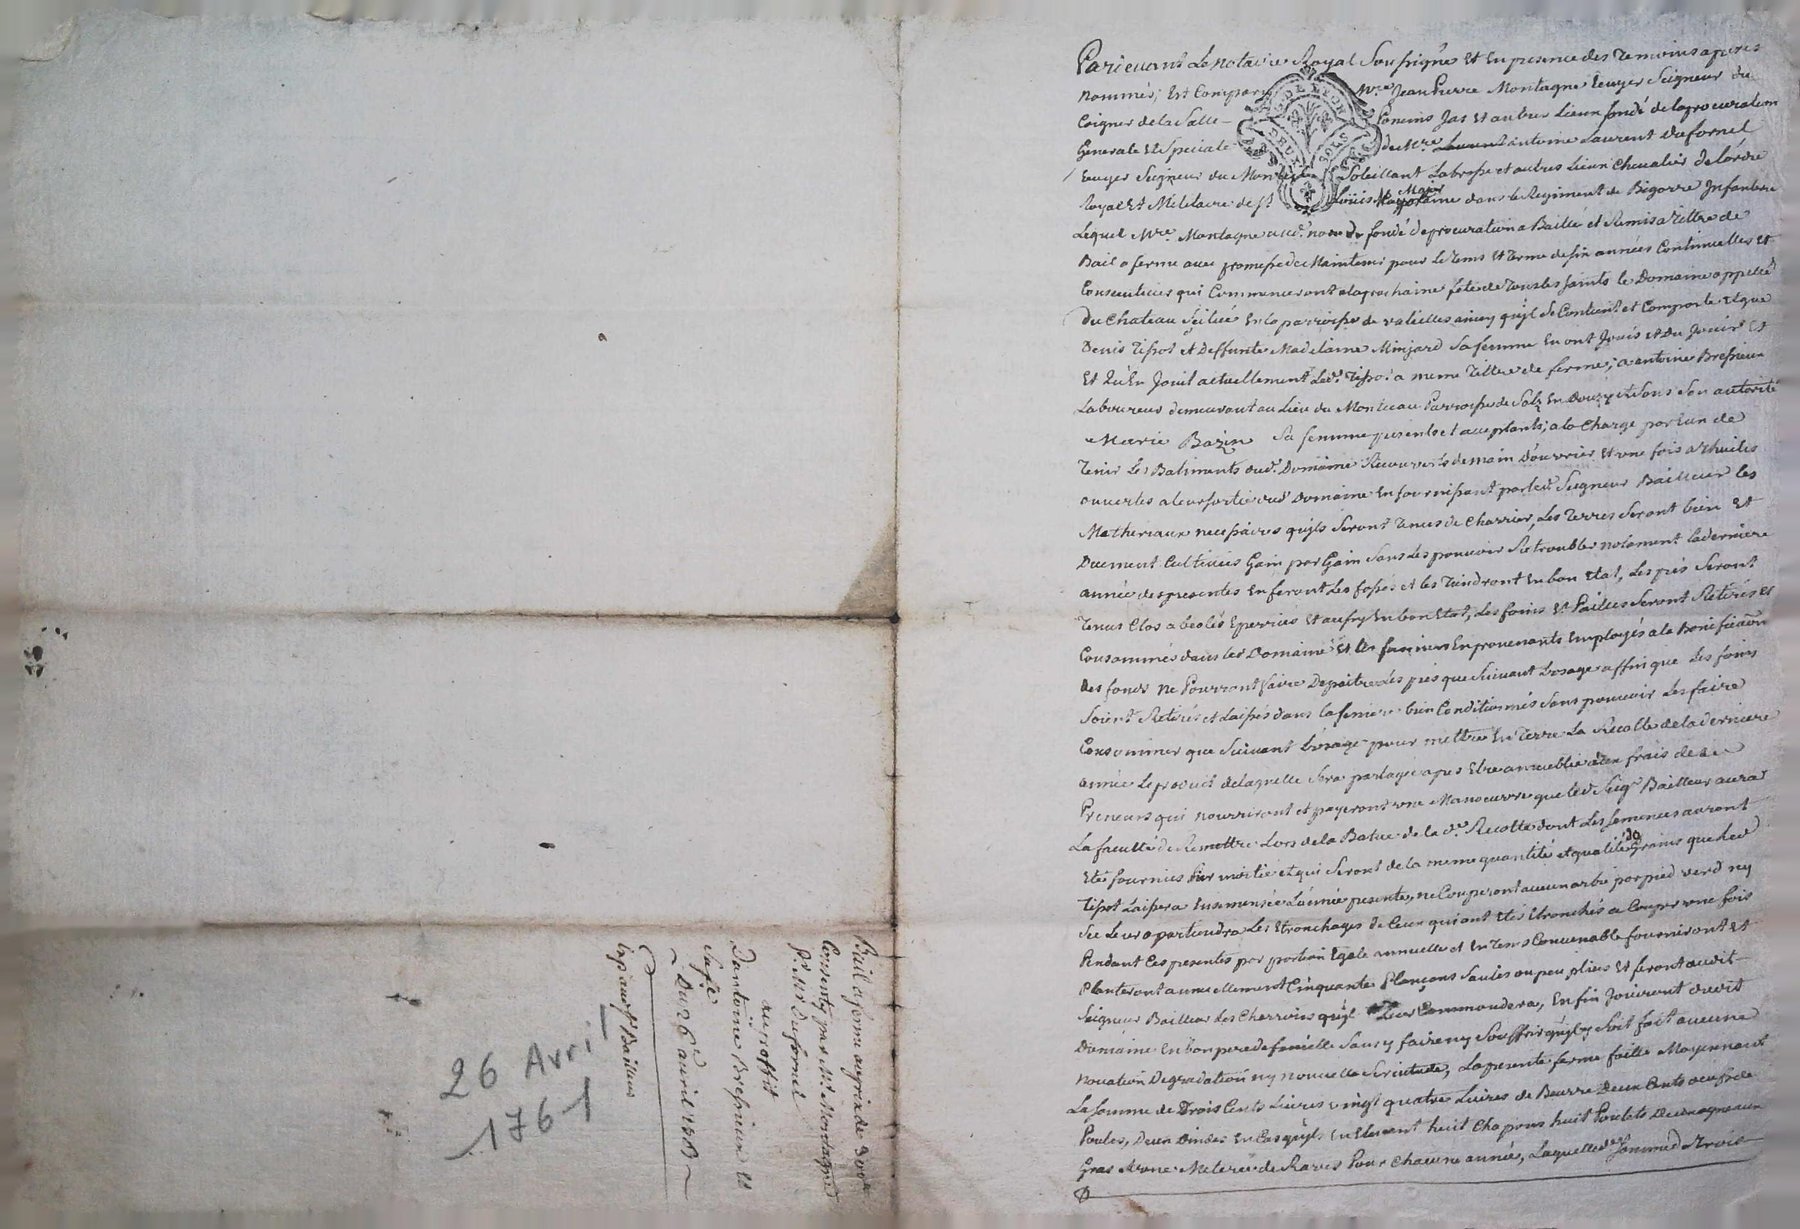 Bail a ferme au prix de 300ᵗᵗ
Consenty par Mr. Montagne
pr. Mr. Dufornel
au proffit
D'antoine Bressieux et
Sa fe
Du 26e avril 1761
Exp. aud. Sr Bailleur
26 Avril
1761
Pardevant Le Notaire Royal Soussigné Et En presence des Temoins apres
Nommés; Est Comparu Mre. Jean Pierre Montagne Ecuyer Seigneur du
Poigner de la Salle Poncins Jas Et autres Lieux fondé de la procuration
Generale Et Speciale de Mre antoine Laurent Dufornel
Ecuyer Seigneur du Soleillant Labrosse et autres Lieux Chevalier de L'ordre
Royal Et Militaire de St Loüis Major dans le Regiment de Bigorre Infanterie
Lequel Mre. Montagne aud. nom de fondé de procuration a Baillé et Remis a Tittre de
Bail a ferme avec promesse de Maintenir pour Le tems Et Terme de six années Continuelles Et
Consecutives qui Commenceront a la prochaine fête de Tous les Saints le Domaine appellé
Du Chateau Scitué En la parroisse de valeilles ainsy qu'il Se Contient et Comporte Et que
Denis Tissot Et Deffunte Madelaine Minjard Sa femme En ont Joüis et Du Joüir Et
Et Qu'En Joüit actuellement Led. Tissot a meme Tittre de ferme; a antoine Bressieux
Laboureur demeurant au Lieu du Montceau Parroisse de Salt En Donzy Et Sous Son autorité
Marie Bazin Sa femme presents et acceptants; a la Charge par Eux de
Tenir Les Batiments dud. Domaine Recouverts de main D'ouvrier Et une fois a thuiles
ouvertes a leur sortie dud Domaine En fournissant par led. Seigneur Bailleur les
Matheriaux necessaires qu'ils Seront Tenus de Charrier, Les Terres Seront bien Et
Duement Cultivées Gain par Gain Sans Les pouvoir Retroubler notament la derniere
année des presentes En feront Les fossés et les Tiendront En bon Etat, Les prés Seront
Tenus Clos a bealés Eperviés Et aussy En bon Etat, Les foins Et Pailles Seront Retirés et
Consommés dans led Domaine Et les fumiers En provenants Employés a la Bonificaõn
des fonds Ne Pourront faire Depaitre Les prés que Suivant L'usage affin que Les foins
Soient Retirés et Laissés dans la feniere bien Conditionnés Sans pouvoir Les faire
Consommer que Suivant L'usage pour mettre En Terre La Recolte de la derniere
année Le produit de laquelle Sera partagé apres Etre ameublie aux frais des
Preneurs qui nourriront et payeront une Manoeuvre que led Seigr Bailleur aura
La faculté de Remettre Lors de la Batue de la de. Recolte dont Les Semences auront
Eté fournies par moitié Et qui Seront de la meme quantité et qualité de Grains que led
Tissot Laissera Ensemencée L'année presente, ne Couperont aucun arbre par pied verd ny
Sec Leur apartiendra Les Etronchages de Ceux qui ont Etés Etronchés a Couper une fois
Pendant Ces presentes par portion Egale annuelle et En tems Convenable fourniront Et
Planteront annuellement Cinquante Plançons Saules ou peupliers Et feront audit
Seigneur Bailleur Les Charrois qu'il Leur Commandera, Enfin Joüiront dudit
Domaine En bon pere de famille Sans y faire ny Souffrir qu'il y Soit fait aucune
novation Degradation ny nouvelle Servitude, La presente ferme faitte Moyennant
La Somme de Trois Cents Livres vingt quatre Livres de Beurre Deux Cents oeufs de
Poules, Deux Dindes En Cas qu'ils En Elevent huit Chapons huit Poulets Deux agneaux
Gras Et une Meteree de Raves Pour Chacune année, Laquelle de. Somme de Trois